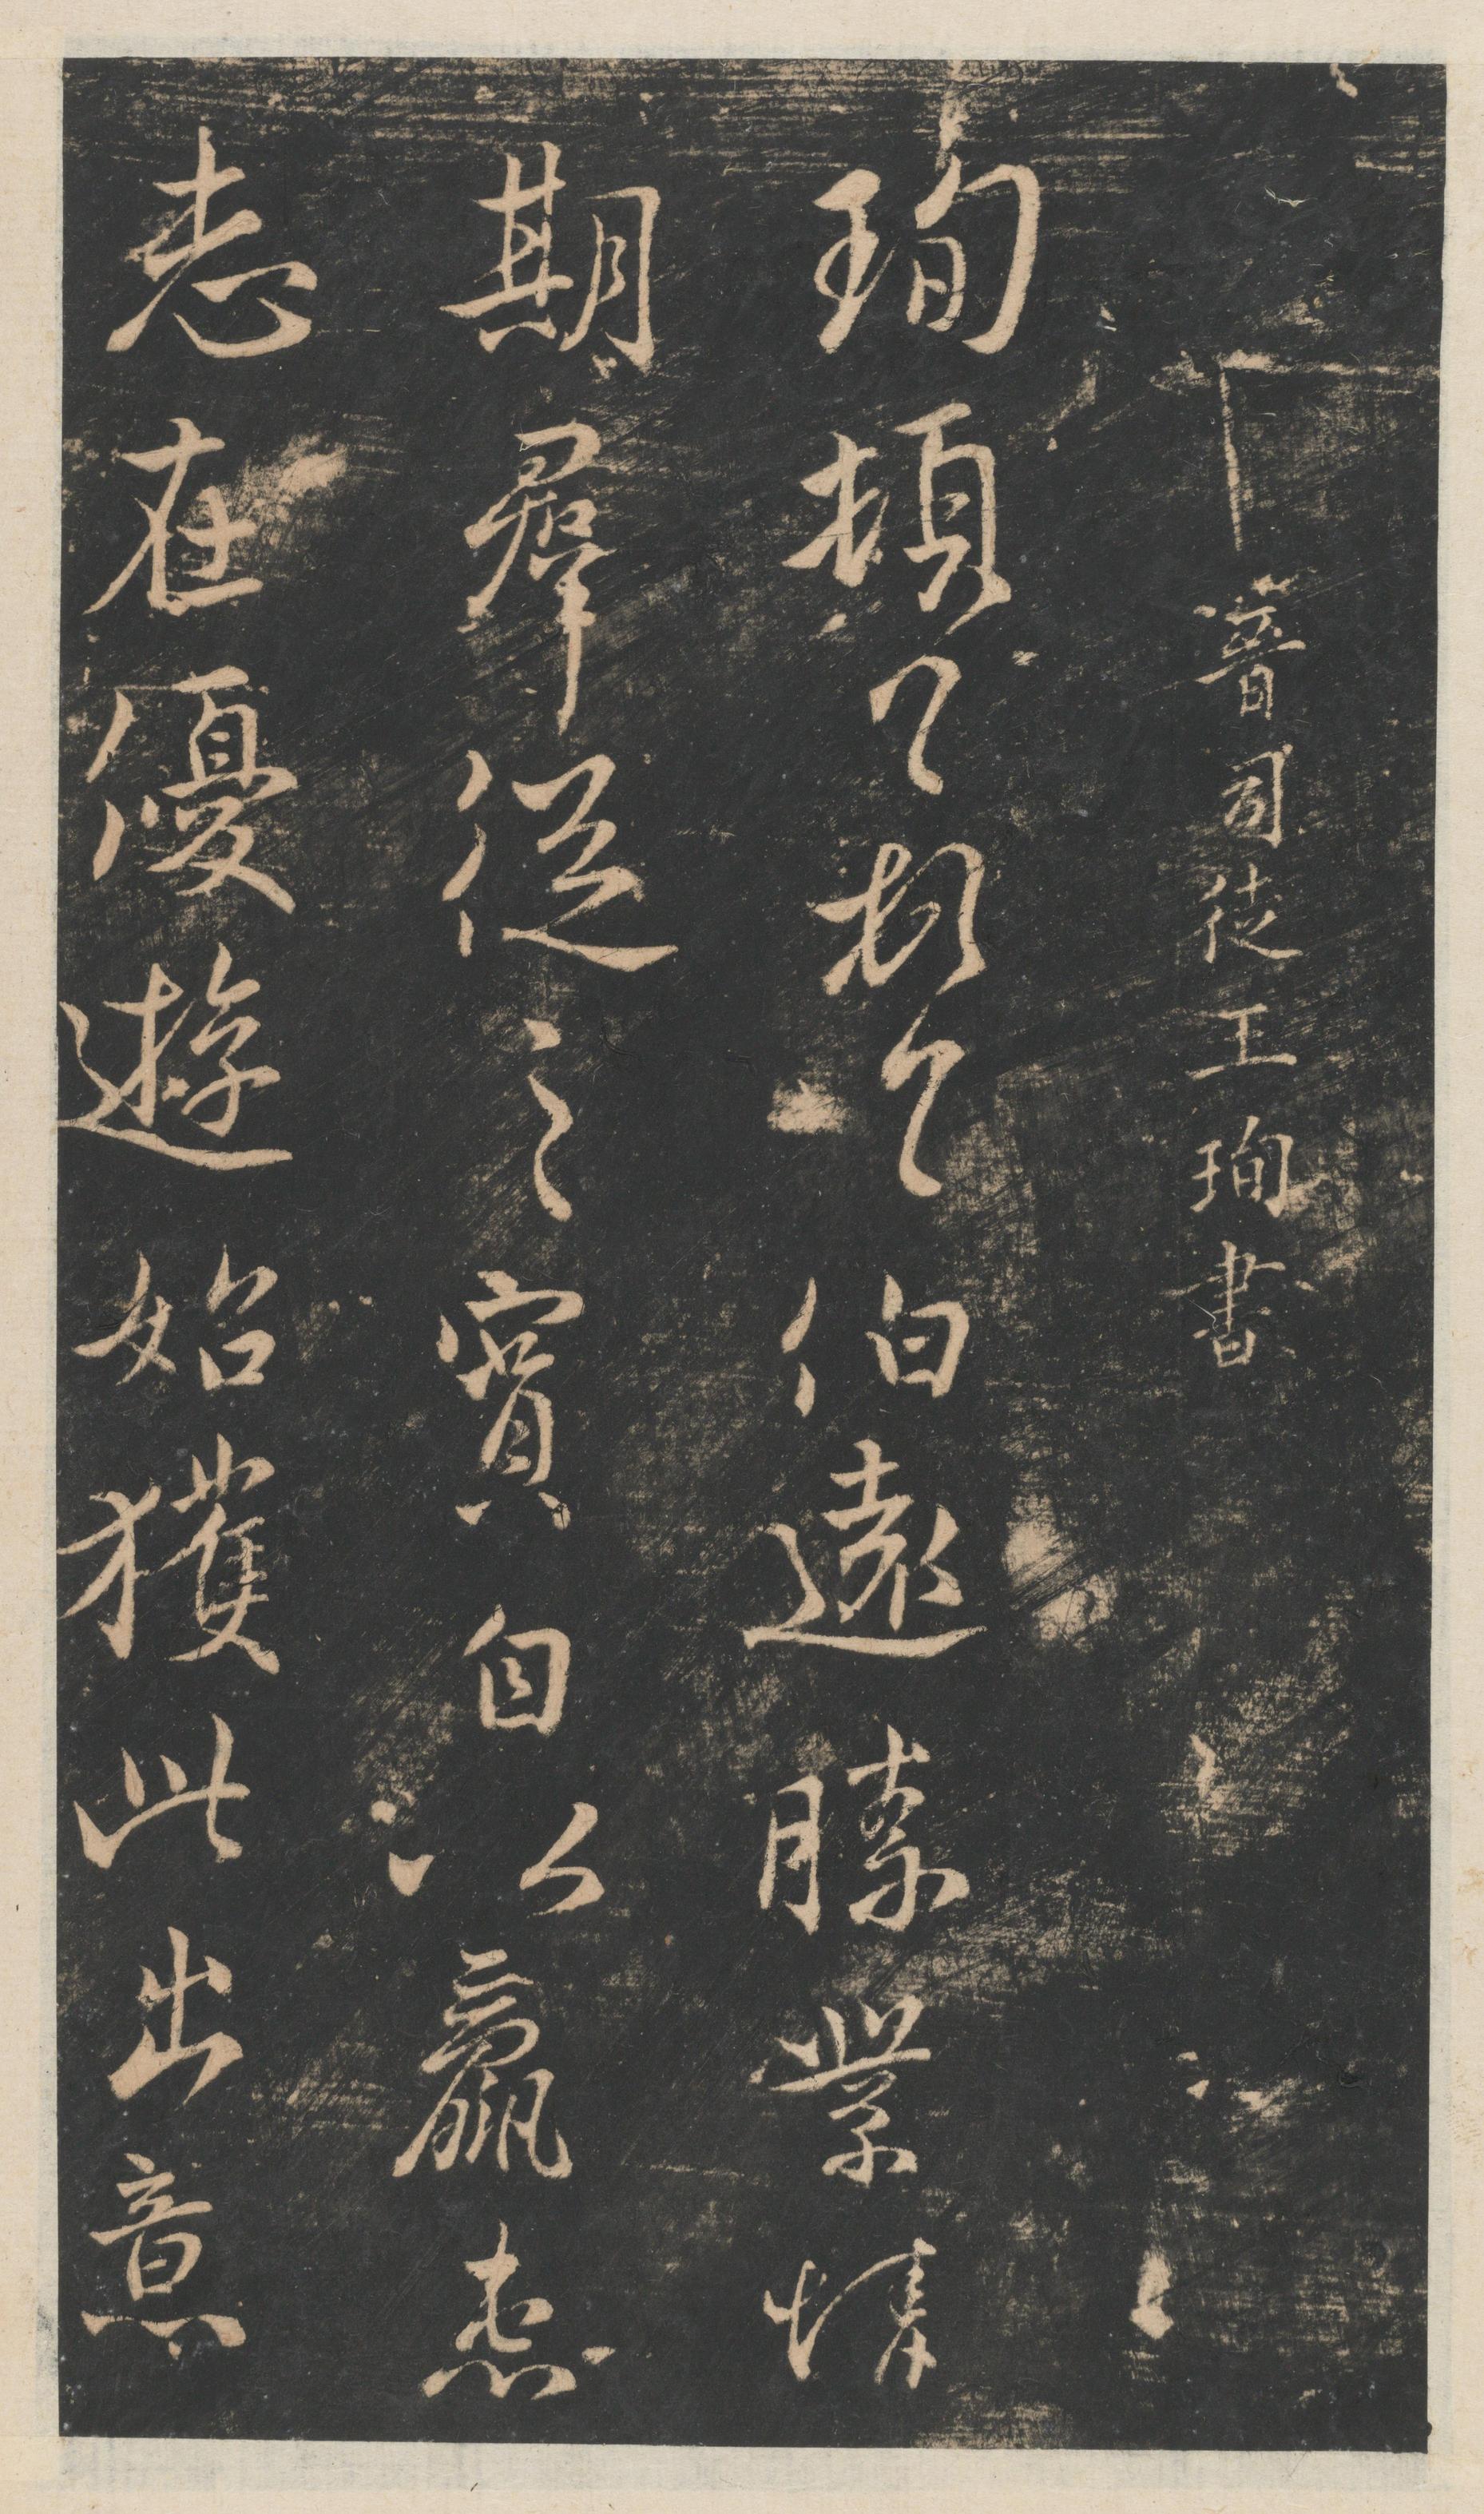 晉司徒王珣書
珣頓首頓首伯遠勝業情
期羣從之寶自以羸患
志在優遊始獲此出意